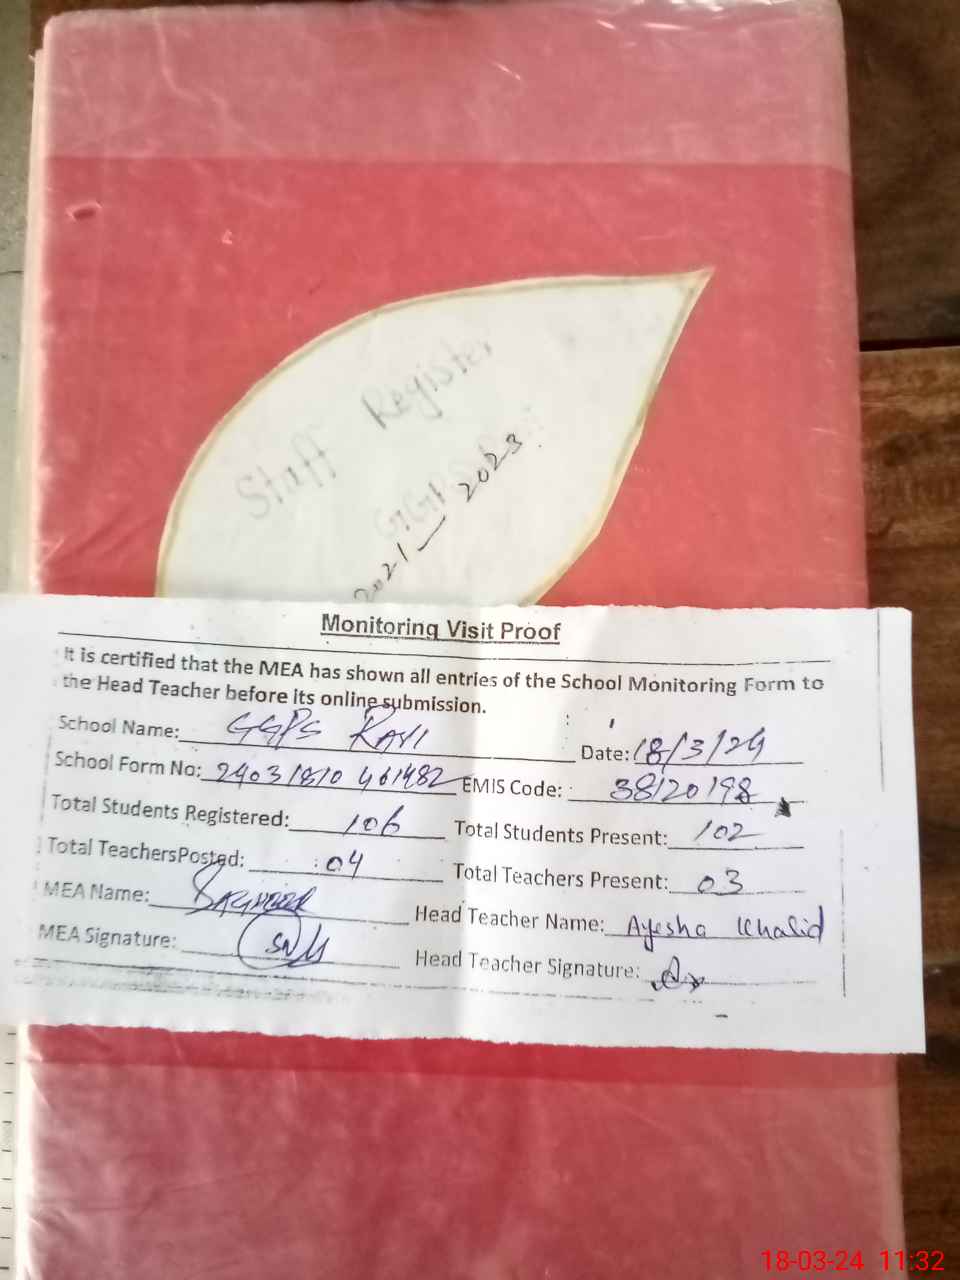 Staff Register
2021 — 2023
Monitoring Visit Proof
It is certified that the MEA has shown all entries of the School Monitoring Form to
the Head Teacher before its online submission.
School Name: GGPS RAYI Date: 18/3/24
School Form No: EMIS Code: 38120198
Total Students Registered: 106 Total Students Present: 102
Total TeachersPosted: 04 Total Teachers Present: 03
MEA Name: Head Teacher Name: Ayesha Khalid
MEA Signature: Head Teacher Signature:
18-03-24 11:32